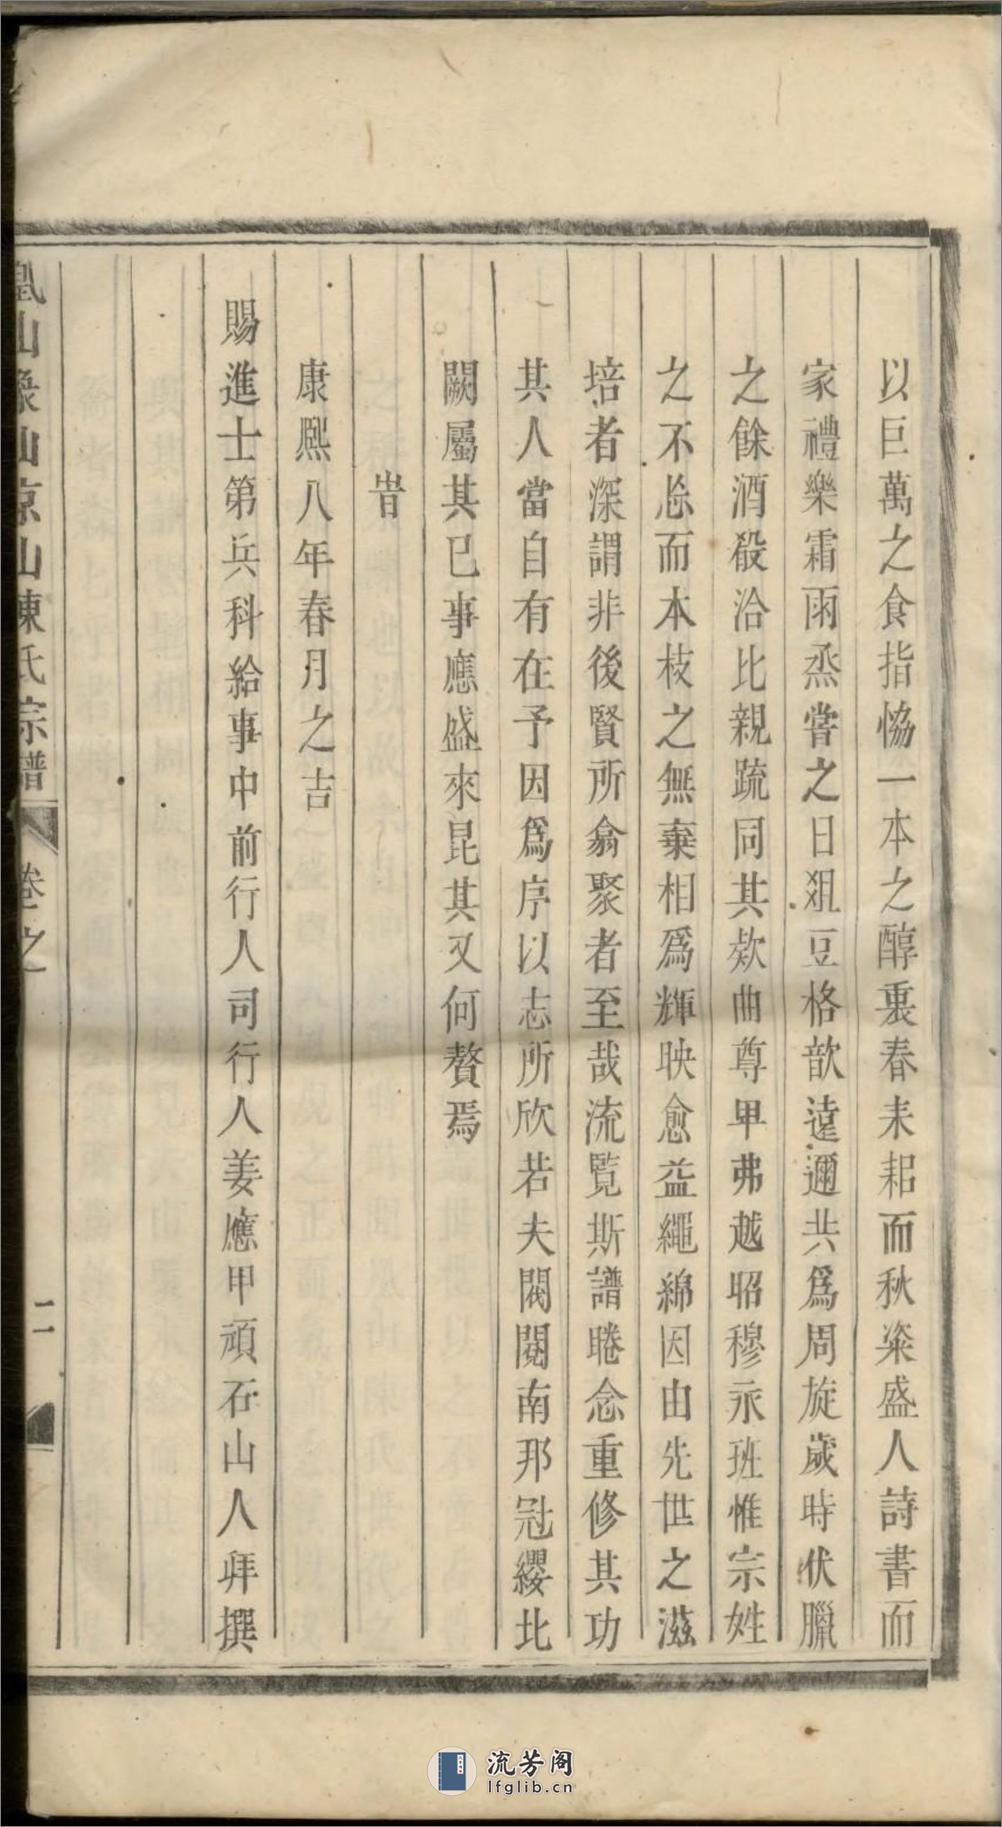 以巨萬之食指恊一本之醇裏春耒耜而秋粢盛人詩書而
家禮樂霜雨烝嘗之日俎豆格歆遠邇共爲周旋歲時伏臘
之餘酒殽洽比親疏同其欵曲尊卑弗越昭穆永班惟宗姓
之不忩而本枝之無棄相爲輝映愈益繩綿因由先世之滋
培者深謂非後賢所翕聚者至哉流覧斯譜睠念重修其功
其人當自有在予因爲序以志所欣若夫閥閱南那冠纓北
闕屬其已事應盛來昆其又何贅焉
旹
康熈八年春月之吉
賜進士第兵科給事中前行人司行人姜應甲頑石山人拜撰
山象山京山陳氏宗譜 卷之 二
流芳阁
lfglib.cn